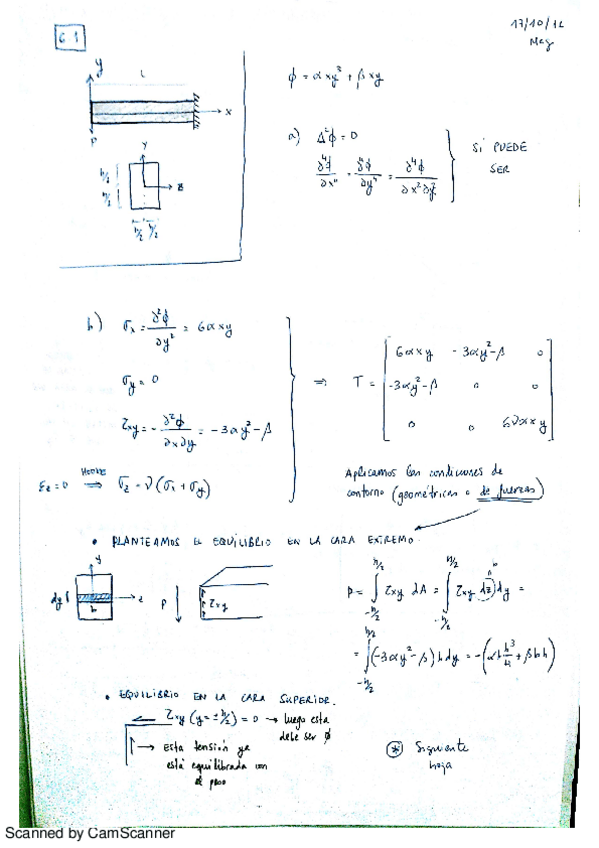 17/10/12
6.1
L
y
x
P
y
z
h/2
h/2
b/2 b/2
ϕ = αxy³ + βxy
a) Δ²ϕ = 0
∂⁴ϕ/∂x⁴ = ∂⁴ϕ/∂y⁴ = ∂⁴ϕ/∂x²∂y²
SÍ PUEDE
SER
b) σx = ∂²ϕ/∂y² = 6αxy
σy = 0
τxy = - ∂²ϕ/∂x∂y = -3αy² - β
εz = 0 HOOKE ⟹ σz = ν(σx + σy)
⇒ T =
6αxy -3αy²-β 0
-3αy²-β 0 0
0 0 6ναxy
Aplicamos las condiciones de
contorno (geométricas o de fuerzas)
• PLANTEAMOS EL EQUILIBRIO EN LA CARA EXTREMO.
y
dy
b
z
P
τxy
P = ∫_{-h/2}^{h/2} τxy dA = ∫_{-h/2}^{h/2} τxy dz dy =
b
= ∫_{-h/2}^{h/2} (-3αy² - β) b dy = -(αb h³/4 + βbh)
• EQUILIBRIO EN LA CARA SUPERIOR.
τxy (y = ± h/2) = 0 → luego esta
debe ser ϕ
→ esta tensión ya
está equilibrada con
el peso
* Siguiente
hoja
Scanned by CamScanner